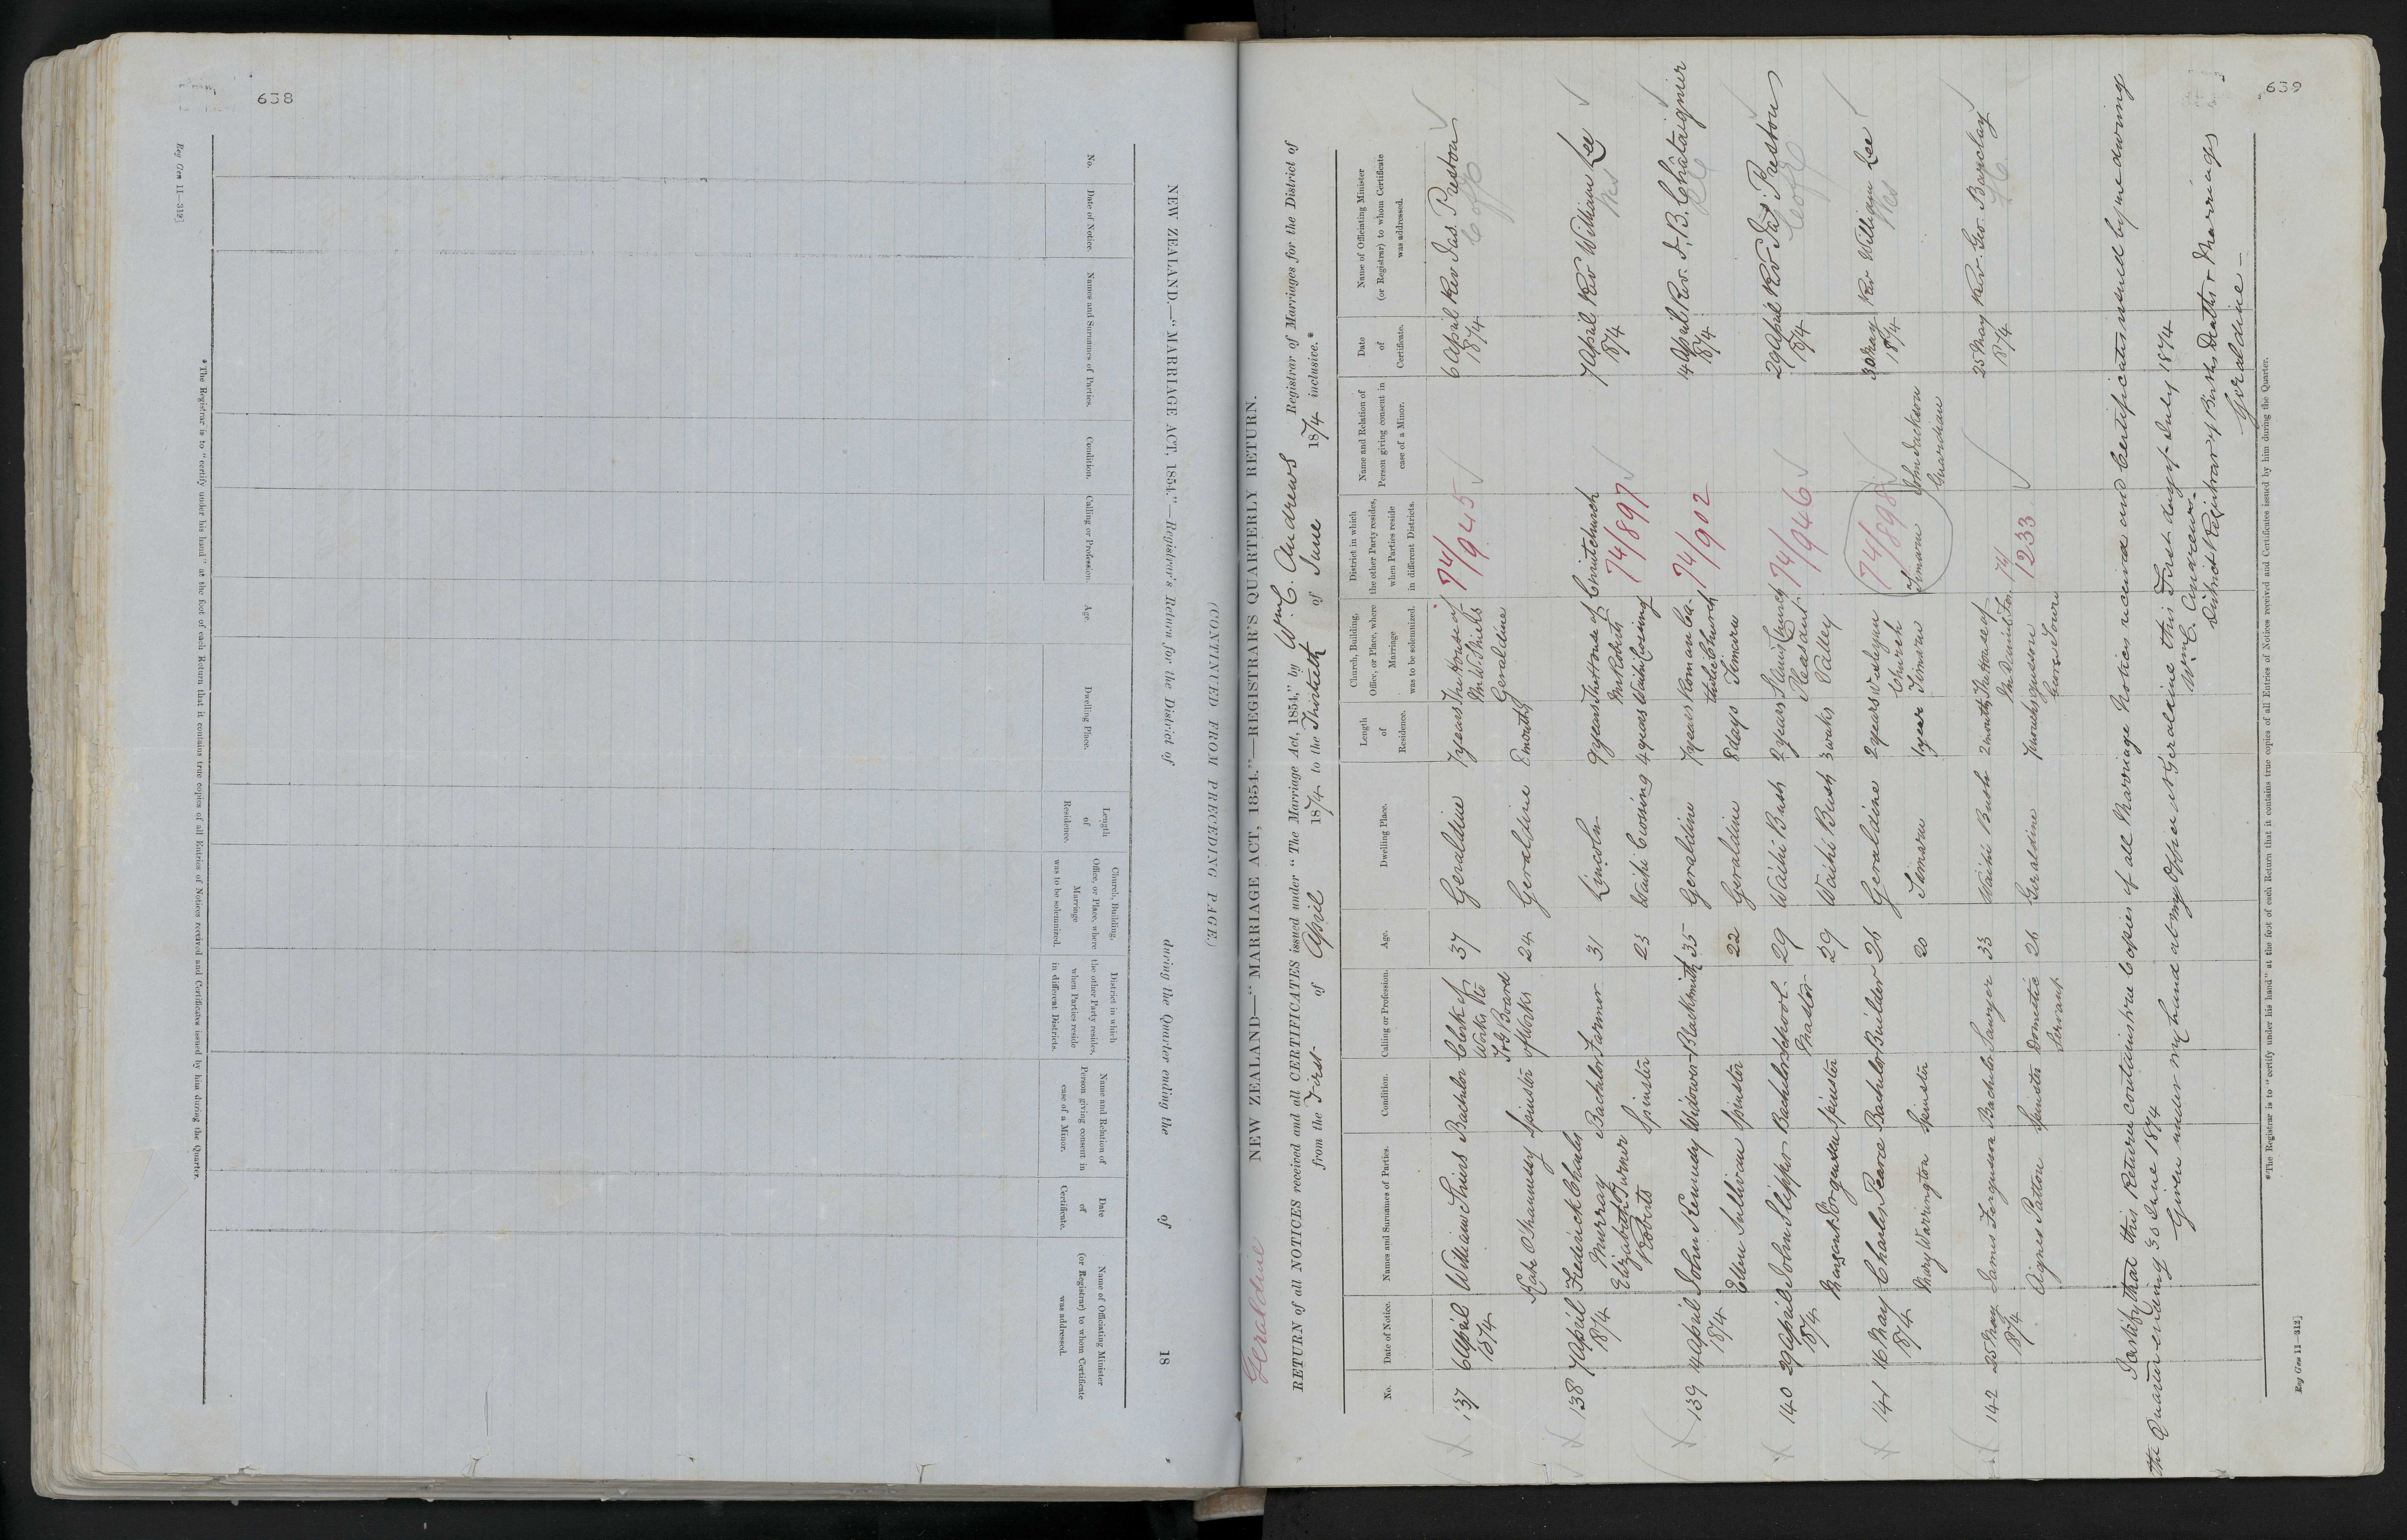 638
NEW ZEALAND.—"MARRIAGE ACT, 1854."—Registrar's Return for the District of during the Quarter ending the of 18
(CONTINUED FROM PRECEDING PAGE.)
No. Date of Notice. Names and Surnames of Parties. Condition. Calling or Profession. Age. Dwelling Place. Length of Residence. Church, Building, Office, or Place, where Marriage was to be solemnized. District in which the other Party resides, when Parties reside in different Districts. Name and Relation of Person giving consent in case of a Minor. Date of Certificate. Name of Officiating Minister (or Registrar) to whom Certificate was addressed.
*The Registrar is to "certify under his hand" at the foot of each Return that it contains true copies of all Entries of Notices received and Certificates issued by him during the Quarter.
Reg Gen 11—312]
639
Geraldine NEW ZEALAND—"MARRIAGE ACT, 1854."—REGISTRAR'S QUARTERLY RETURN.
RETURN of all NOTICES received and all CERTIFICATES issued under "The Marriage Act, 1854," by Wm. C. Andrews Registrar of Marriages for the District of
from the First of April 1874 to the Thirtieth of June 1874 inclusive.*
No. Date of Notice. Names and Surnames of Parties. Condition. Calling or Profession. Age. Dwelling Place. Length of Residence. Church, Building, Office, or Place, where Marriage was to be solemnized. District in which the other Party resides, when Parties reside in different Districts. Name and Relation of Person giving consent in case of a Minor. Date of Certificate. Name of Officiating Minister (or Registrar) to whom Certificate was addressed.
137 6 April 1874 William Shiers Bachelor Clerk of Works to 37 Geraldine 7 years The House of Mr W. Shiels Geraldine 74/945 6 April 1874 Rev Jas. Preston C of E
Kate O'Shannessy Spinster Board of Works 24 Geraldine 8 months
138 7 April 1874 Frederick Charles Murray Bachelor Farmer 31 Lincoln 9 years The House of Mr Roberts Waihi Crossing Christchurch 74/897 7 April 1874 Rev William Lee Wes
Elizabeth Turner Roberts Spinster 23 Waihi Crossing 4 years
139 14 April 1874 John Kennedy Widower Blacksmith 35 Geraldine 7 years Roman Catholic Church Temuka 74/902 14 April 1874 Rev. J. B. Châtaignier RC
Ellen Sullivan Spinster 22 Geraldine 8 days
140 29 April 1874 John Slipper Bachelor School-Master 29 Waihi Bush 2 years Church Pleasant Valley 74/946 29 April 1874 Rev Jas Preston C of E
Margaret Jorgensen Spinster 29 Waihi Bush 3 weeks
141 16 May 1874 Charles Pearce Bachelor Builder 26 Geraldine 2 years Wesleyan Church Timaru 74/898 30 May 1874 Rev William Lee Wes
Mary Warrington Spinster 20 Timaru 1 year Timaru John Jackson Guardian
142 25 May 1874 James Ferguson Bachelor Sawyer 33 Waihi Bush 2 months The House of Mr Daniel Ferguson 74/1233 25 May 1874 Rev. Geo. Barclay
Agnes Patton Spinster Domestic Servant 26 Geraldine 7 weeks
I certify that this Return contains true Copies of all Marriage Notices received and Certificates issued by me during
the Quarter ending 30 June 1874
Given under my hand at my Office at Geraldine this First day of July 1874
Wm. C. Andrews
District Registrar of Births Deaths & Marriages
Geraldine
*The Registrar is to "certify under his hand" at the foot of each Return that it contains true copies of all Entries of Notices received and Certificates issued by him during the Quarter.
Reg Gen 11—312]